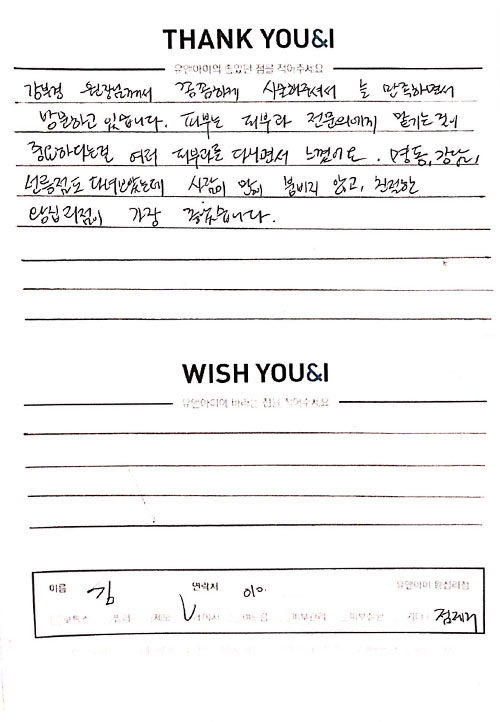 THANK YOU&I
유앤아이의 좋았던 점을 적어주세요
강부경 원장님께서 꼼꼼하게 시술해주셔서 늘 만족하면서
방문하고 있습니다. 피부는 피부과 전문의에게 맡기는것이
중요하다는걸 여러 피부과를 다니면서 느꼈어요. 명동, 강남,
선릉점도 다녀봤는데 사람이 많이 붐비지 않고, 친절한
왕십리점이 가장 좋습니다.
WISH YOU&I
유앤아이에 바라는 점을 적어주세요
이름 김 연락처 010. 유앤아이 왕십리점
보톡스 필러 제모 여드름 피부관리 기타 점제거